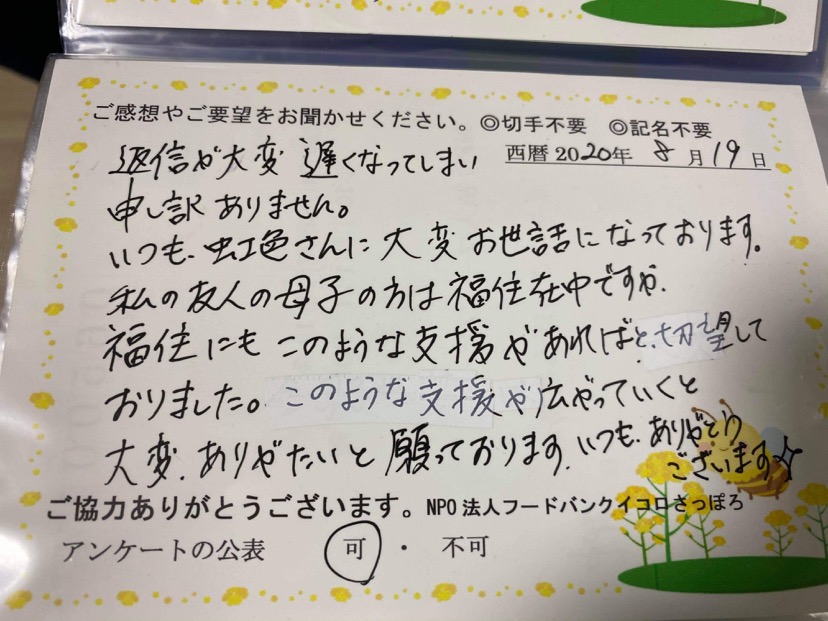 ご感想やご要望をお聞かせください。◎切手不要　◎記名不要
西暦2020年 8月19日
返信が大変遅くなってしまい
申し訳ありません。
いつも、虹色さんに大変お世話になっております。
私の友人の母子の方は福住在中ですが、
福住にもこのような支援があればと、切望して
おりました。このような支援が広がっていくと
大変、ありがたいと願っております。いつも、ありがとう
ございます
ご協力ありがとうございます。NPO法人フードバンクイコロさっぽろ
アンケートの公表　可 ・ 不可